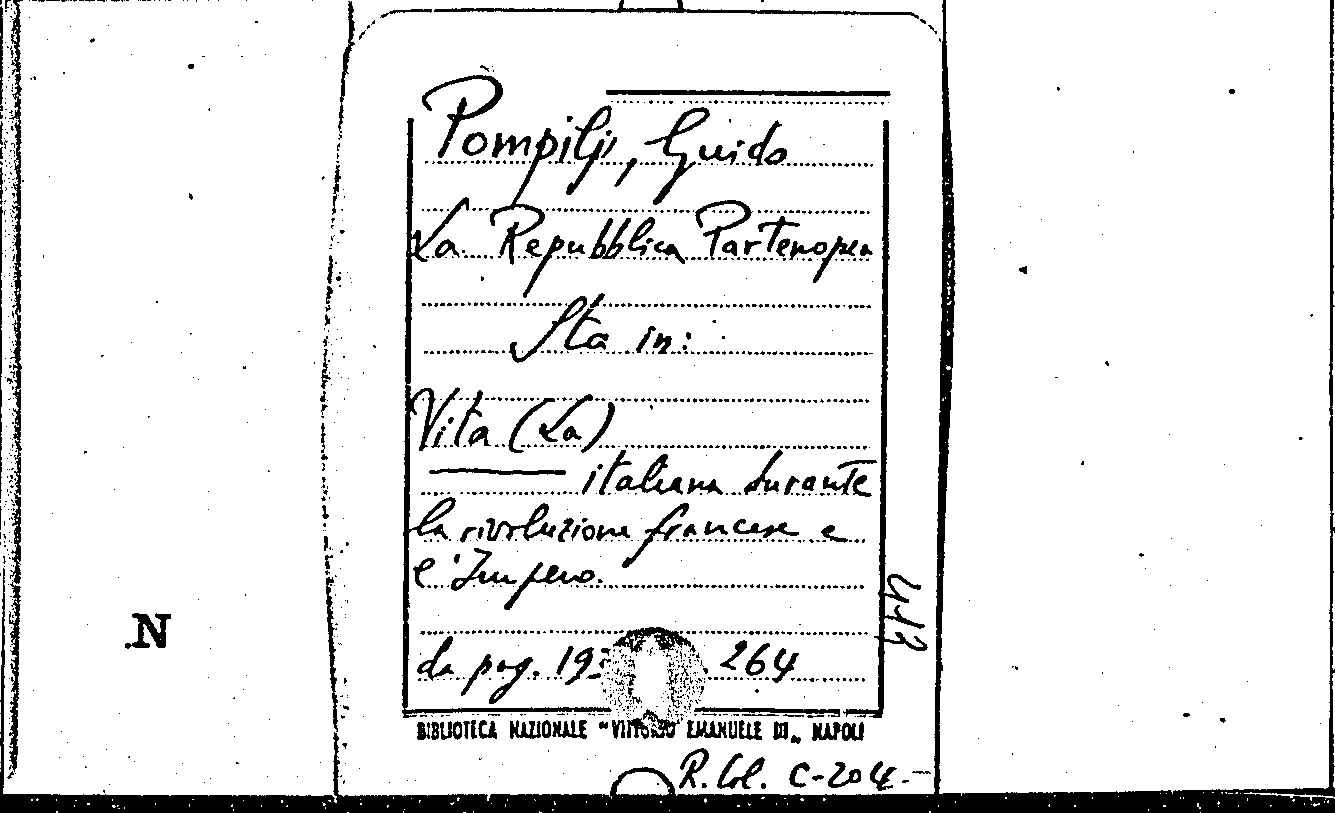 Pompilj, Guido
La Repubblica Partenopea
Sta in:
Vita (La)
italiana durante
la rivoluzione francese e
l'Impero.
da pag. 264
BIBLIOTECA NAZIONALE "VITTORIO EMANUELE III„ NAPOLI
R. Col. C-204.
.N